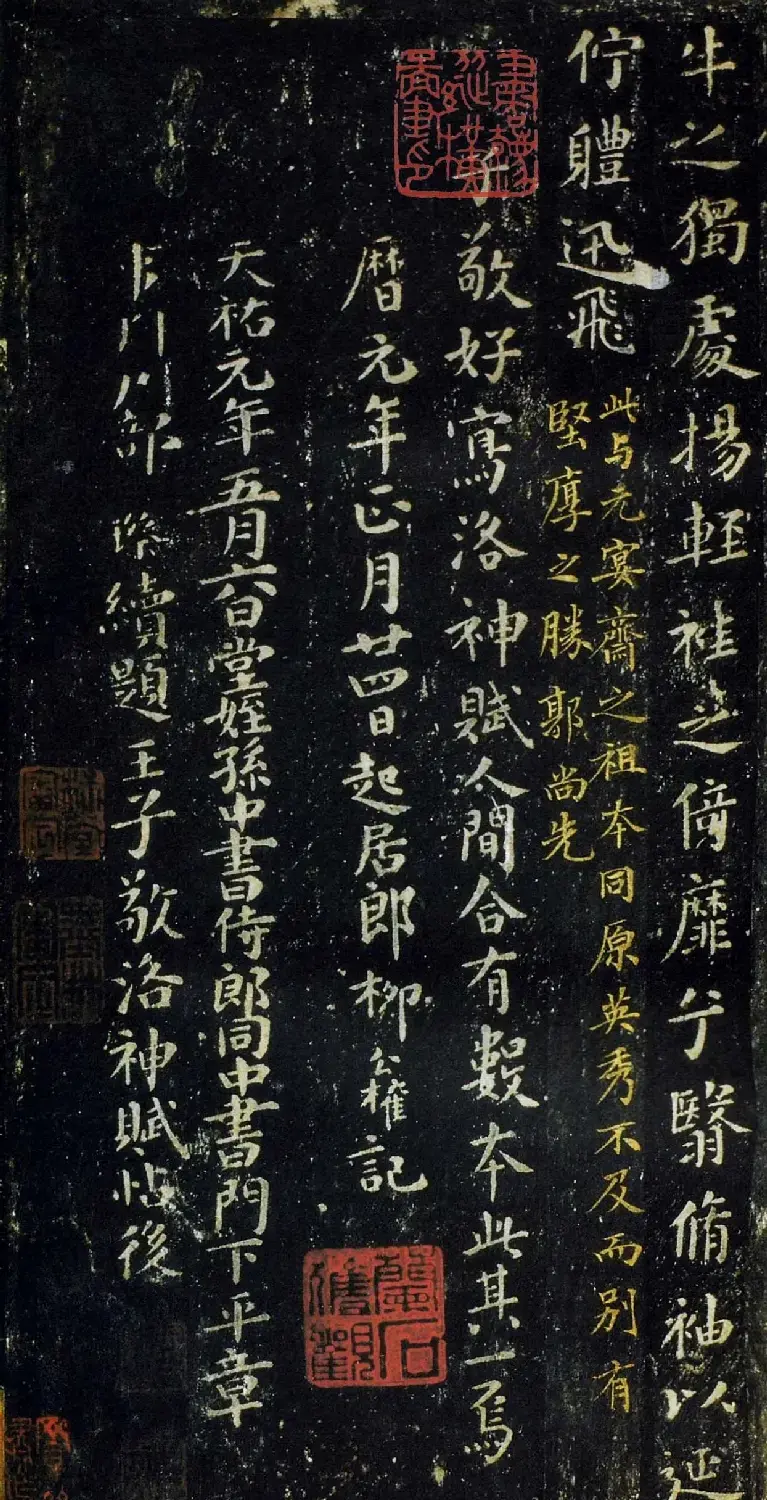 牛之獨處揚輕袿之倚靡兮翳脩袖以延
佇體迅飛
此与元宴齋之祖本同原英秀不及而别有
堅厚之勝郭尚先
子敬好寫洛神賦人間合有數本此其一焉
曆元年正月廿四日起居郎柳公權記
天祐元年五月六日堂姪孫中書侍郎同中書門下平章
部
續題王子敬洛神賦帖後